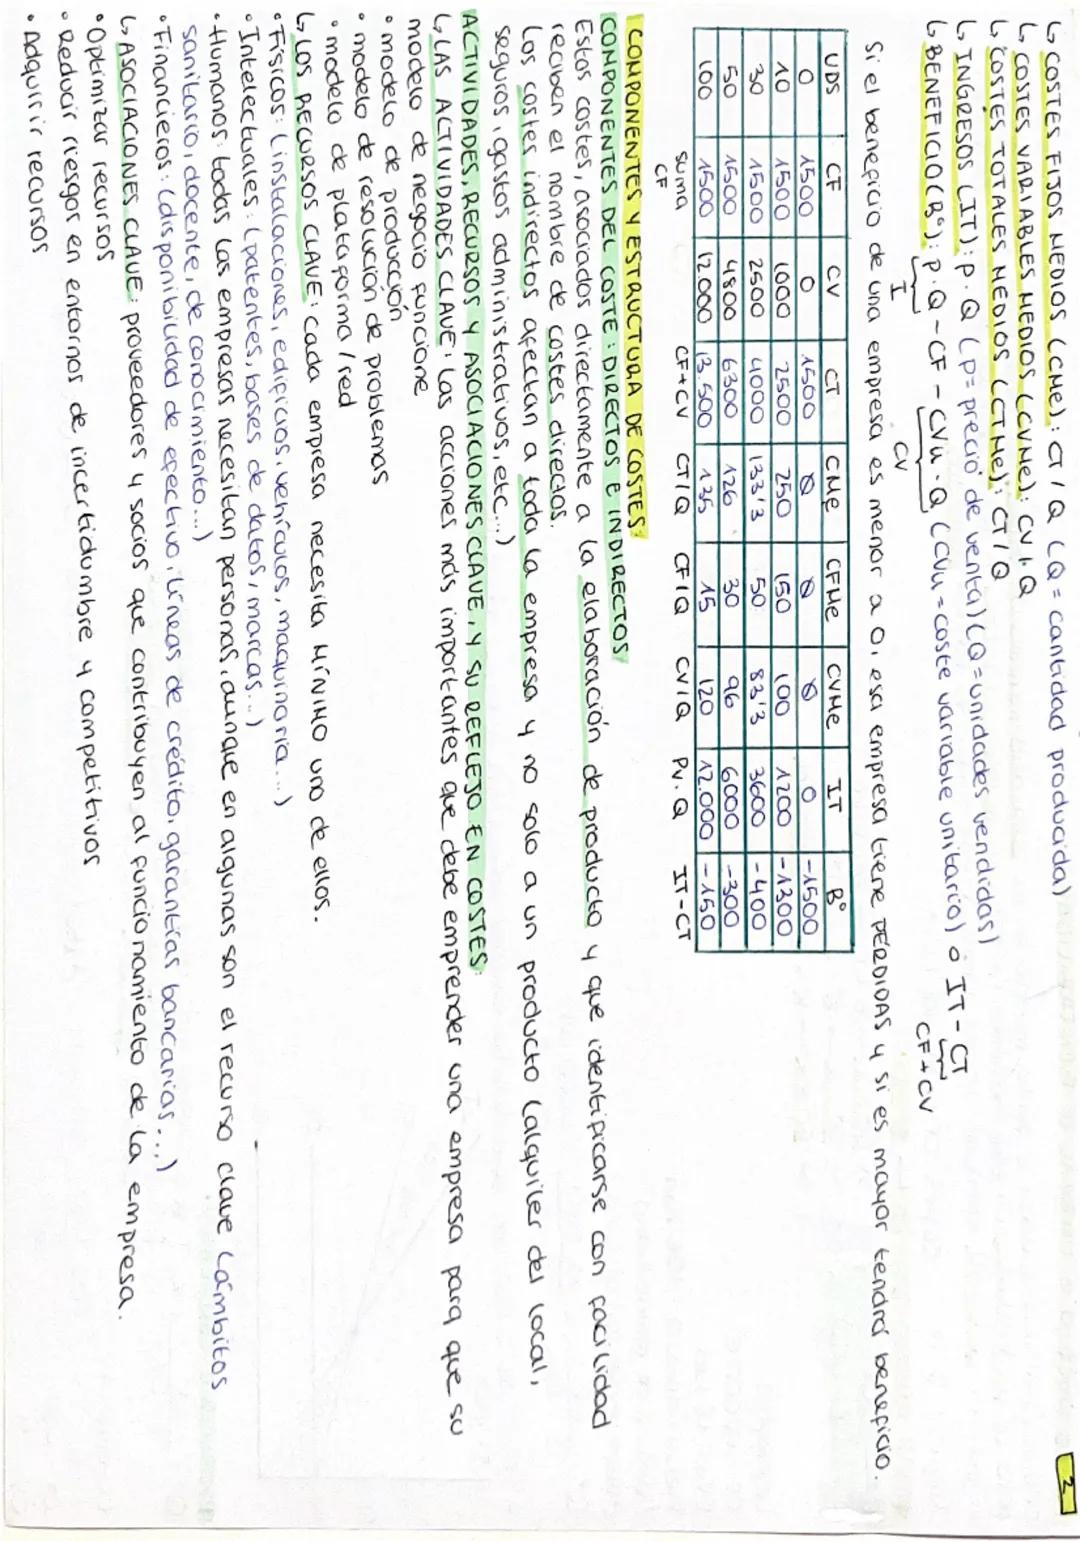 2
↳ COSTES FIJOS MEDIOS (CMe): CT / Q (Q = cantidad producida)
↳ COSTES VARIABLES MEDIOS (CVMe): CV / Q
↳ COSTES TOTALES MEDIOS (CTMe): CT / Q
↳ INGRESOS (IT): p · Q (p = precio de venta) (Q = unidades vendidas)
↳ BENEFICIO (Bº): p · Q - CF - CVu · Q (CVu = coste variable unitario) ó IT - CT
I CV CF + CV
Si el beneficio de una empresa es menor a 0, esa empresa tiene PÉRDIDAS y si es mayor tendrá beneficio.
UDS CF CV CT CMe CFMe CVMe IT Bº
0 1500 0 1500 Ø Ø Ø 0 -1500
10 1500 1000 2500 250 150 100 1200 -1300
30 1500 2500 4000 133'3 50 83'3 3600 -400
50 1500 4800 6300 126 30 96 6000 -300
100 1500 12.000 13.500 135 15 120 12.000 -150
suma CF CF+CV CT/Q CF/Q CV/Q Pv.Q IT-CT
COMPONENTES Y ESTRUCTURA DE COSTES:
COMPONENTES DEL COSTE: DIRECTOS E INDIRECTOS
Estos costes, asociados directamente a la elaboración de producto y que identificarse con facilidad
reciben el nombre de costes directos.
Los costes indirectos afectan a toda la empresa y no solo a un producto (alquiler del local,
seguros, gastos administrativos, etc...)
ACTIVIDADES, RECURSOS Y ASOCIACIONES CLAVE, Y SU REFLEJO EN COSTES:
↳ LAS ACTIVIDADES CLAVE: las acciones más importantes que debe emprender una empresa para que su
modelo de negocio funcione
• modelo de producción
• modelo de resolución de problemas
• modelo de plataforma / red
↳ LOS RECURSOS CLAVE: cada empresa necesita MÍNIMO uno de ellos.
• Físicos: (instalaciones, edificios, vehículos, maquinaria...)
• Intelectuales: (patentes, bases de datos, marcas...)
• Humanos: todas las empresas necesitan personas, aunque en algunas son el recurso clave (ámbitos
sanitario, docente, de conocimiento...)
• Financieros: (disponibilidad de efectivo, líneas de crédito, garantías bancarias...)
↳ ASOCIACIONES CLAVE: proveedores y socios que contribuyen al funcionamiento de la empresa.
• Optimizar recursos
• Reducir riesgos en entornos de incertidumbre y competitivos
• Adquirir recursos